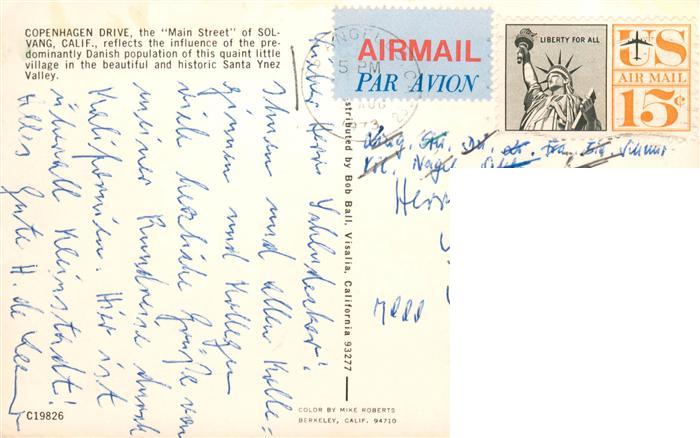 COPENHAGEN DRIVE, the "Main Street" of SOL-
VANG, CALIF., reflects the influence of the pre-
dominantly Danish population of this quaint little
village in the beautiful and historic Santa Ynez
Valley.
AIRMAIL
PAR AVION
5 PM
AUG
1973
LIBERTY FOR ALL
US
AIR MAIL
15¢
Lieber Herr
Ihnen und allen Kolle-
ginnen und Kollegen
viele herzliche Grüße von
meiner Rundreise durch
Kalifornien. Hier ist
überall Kleinstadt!
Alles Gute H. de
Distributed by Bob Ball, Visalia, California 93277
Herr
C19826
COLOR BY MIKE ROBERTS
BERKELEY, CALIF. 94710